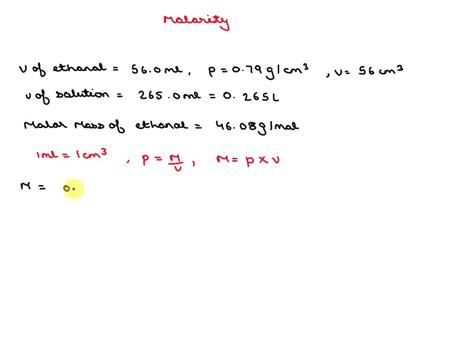 Molarity
V of ethanol = 56.0 ml, ρ = 0.79 g/cm³, V = 56 cm³
V of solution = 265.0 ml = 0.265 L
Molar Mass of ethanol = 46.08 g/mol
1 ml = 1 cm³, ρ = M/V, M = ρ × V
M = 0.